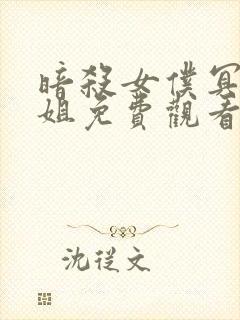 暗殺女僕冥
姐免費觀看
沈從文